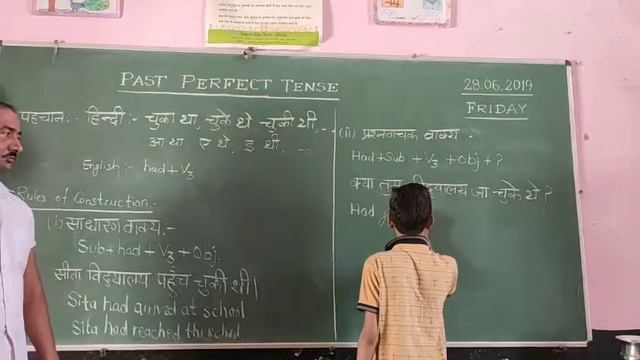 PAST PERFECT TENSE
28.06.2019
FRIDAY
पहचान :- हिन्दी :- चुका था, चुके थे, चुकी थी, ...
आ था, ए थे, ई थी, ...
English :- had + V3
Rules of Construction :-
(i) साधारण वाक्य :-
Sub + had + V3 + Obj.
सीता विद्यालय पहुंच चुकी थी।
Sita had arrived at school
Sita had reached the school
(ii) प्रश्नवाचक वाक्य :-
Had + Sub + V3 + Obj + ?
क्या तुम विद्यालय जा चुके थे ?
Had